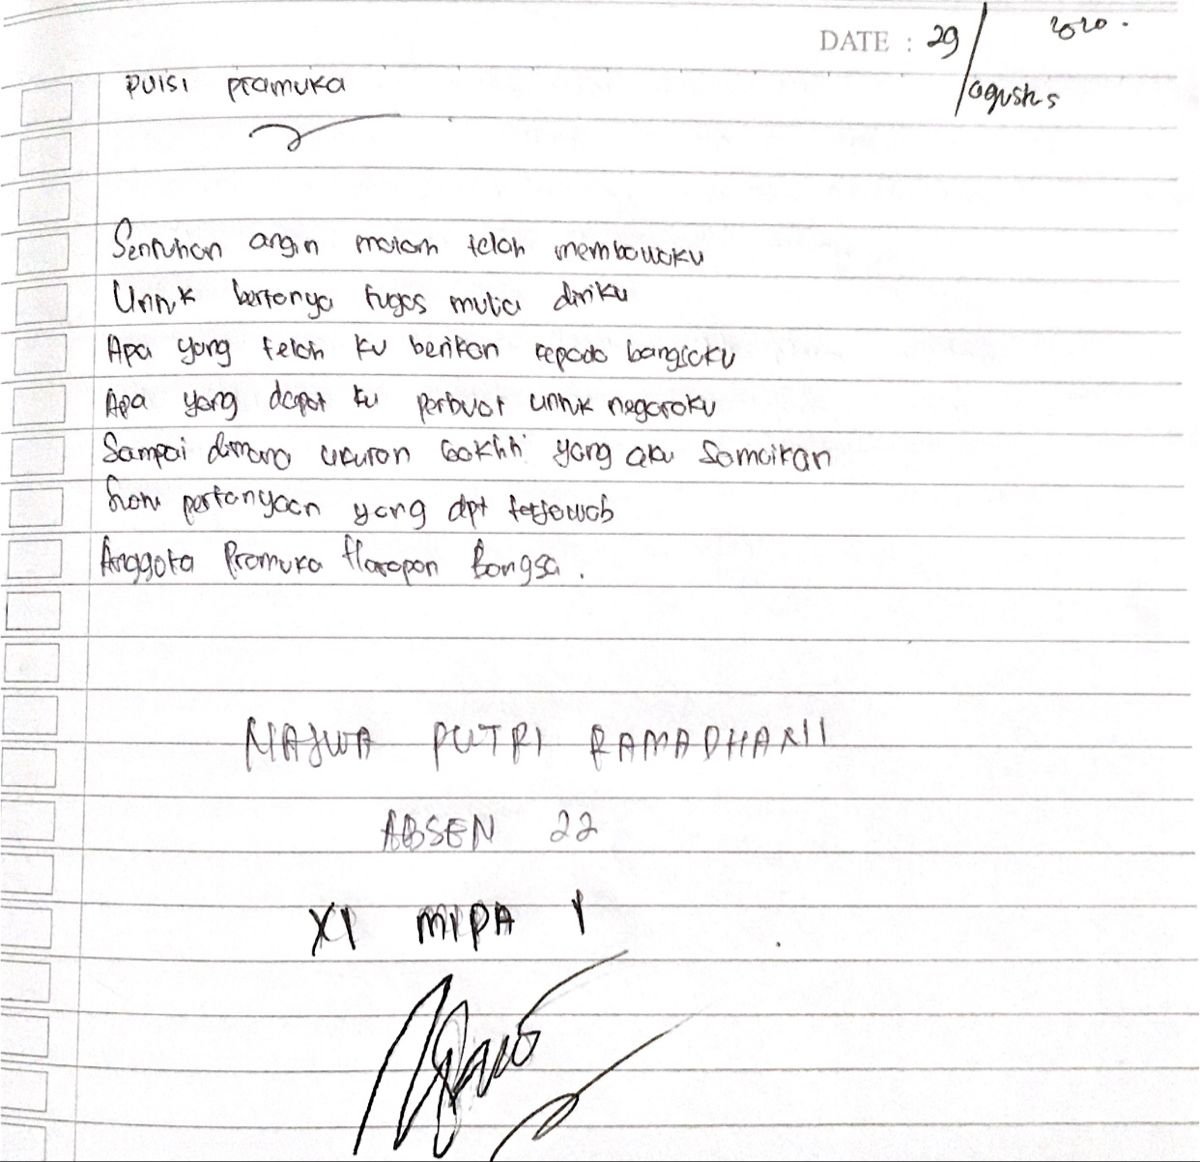 DATE : 29 / agustus 2020.
PUISI Pramuka
Sentuhan angin malam telah membawaku
Untuk bertanya tugas mulia diriku
Apa yang telah ku berikan kepada bangsaku
Apa yang dapat ku perbuat untuk negaraku
Sampai dimana ukuran bakti yang aku
pertanyaan yang dpt terjawab
Anggota Pramuka Harapan Bangsa.
NAJWA PUTRI RAMADHANII
ABSEN 22
XI MIPA 1